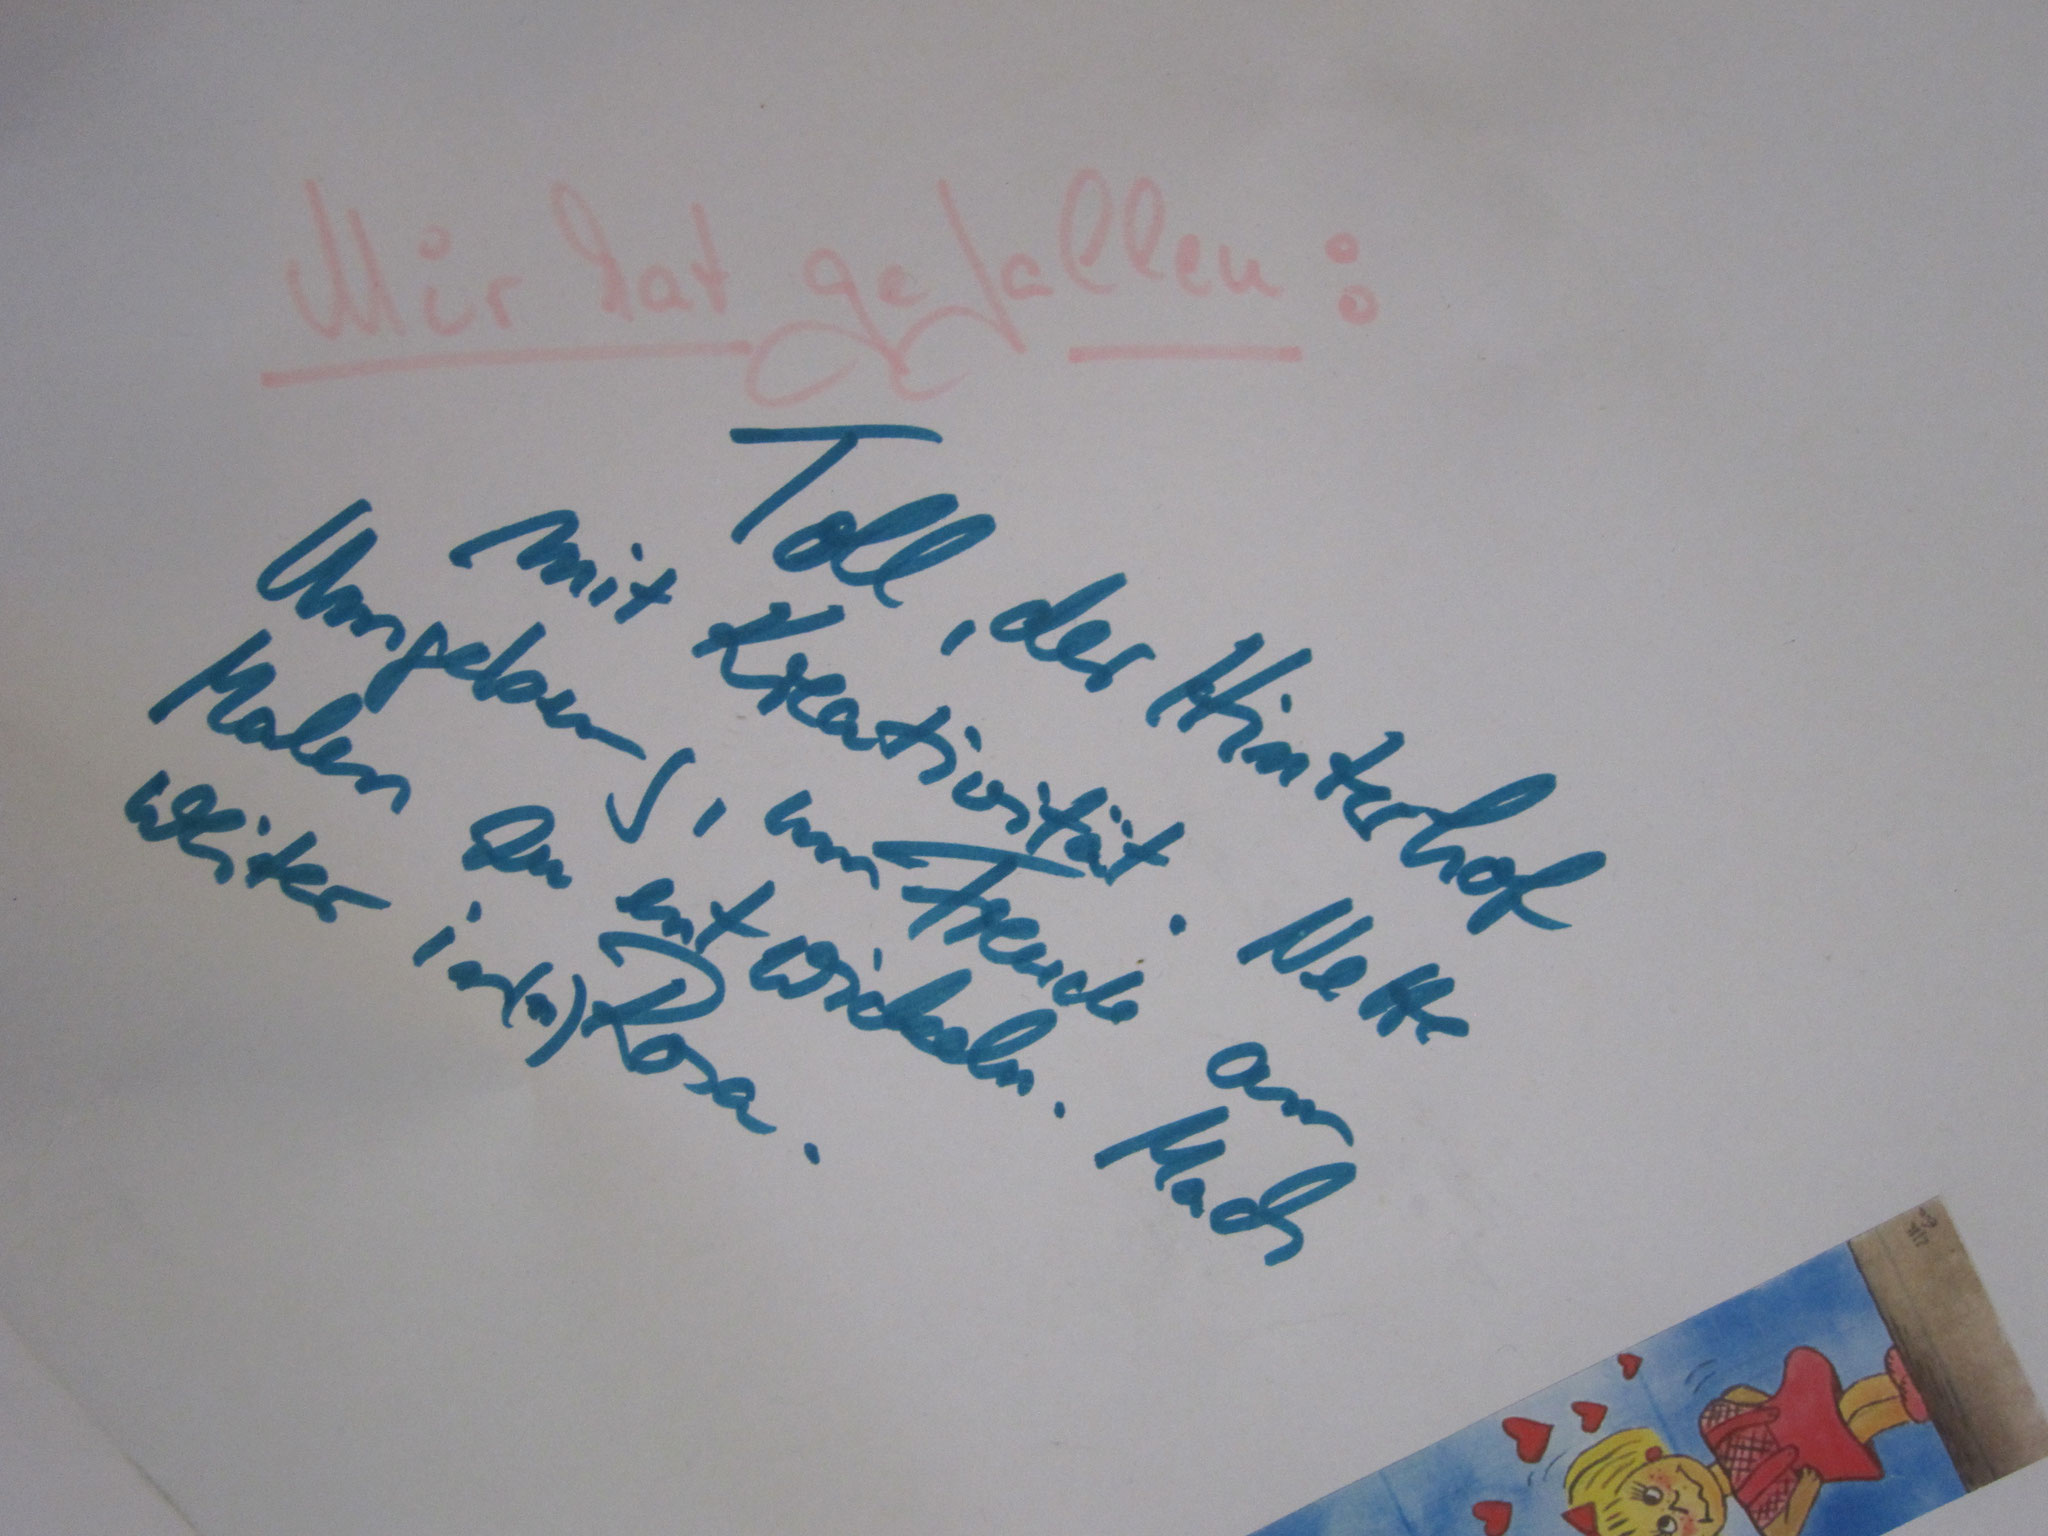 Mir hat gefallen:
Toll, der Hinterhof
mit Kreativität. Nette
Umgebung, um Freude am
Malen zu entwickeln. Mach
weiter in(n) Rosa.